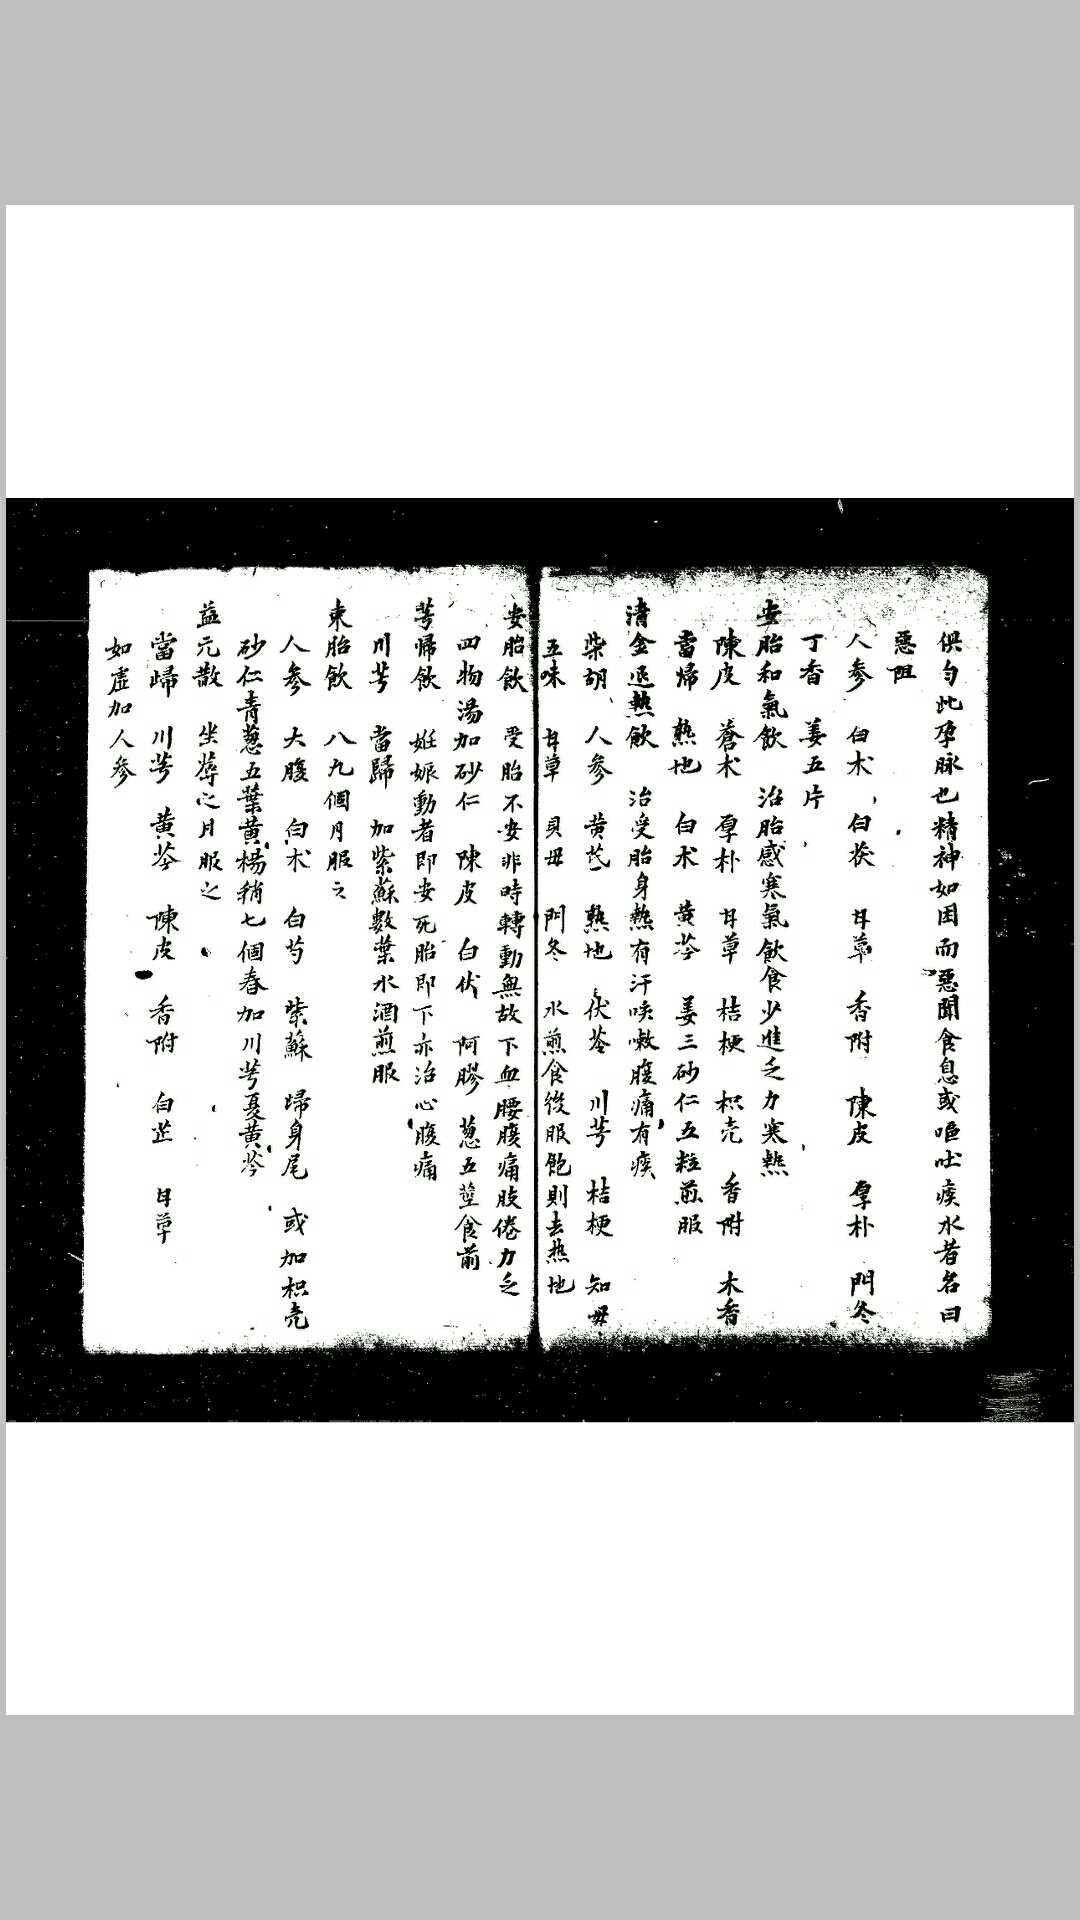 俱勻此孕脉也精神如困而惡聞食息或嘔吐痰水者名曰
惡阻
人參 白术 白茯 甘草 香附 陳皮 厚朴 門冬
丁香 姜五片
安胎和氣飲 治胎感寒氣飲食少進乏力寒熱
陳皮 蒼术 厚朴 甘草 桔梗 枳壳 香附 木香
當帰 熟地 白术 黄芩 姜三砂仁五粒煎服
清金退熱飲 治受胎身熱有汗咳嗽腹痛有痰
柴胡 人參 黄芪 熟地 茯苓 川芎 桔梗 知母
五味 甘草 貝母 門冬 水煎食後服飽則去熟地
安胎飲 受胎不安非時轉動無故下血腰腹痛肢倦力乏
四物湯加砂仁 陳皮 白伏 阿膠 葱五莖食前
芎帰飲 妊娠動者即安死胎即下亦治心腹痛
川芎 當歸 加紫蘇數葉水酒煎服
束胎飲 八九個月服之
人參 大腹 白术 白芍 紫蘇 帰身尾 或加枳壳
砂仁青葱五葉黄楊稍七個春加川芎夏黄芩
益元散 坐蓐之月服之
當歸 川芎 黄芩 陳皮 香附 白芷 甘草
如虛加人參